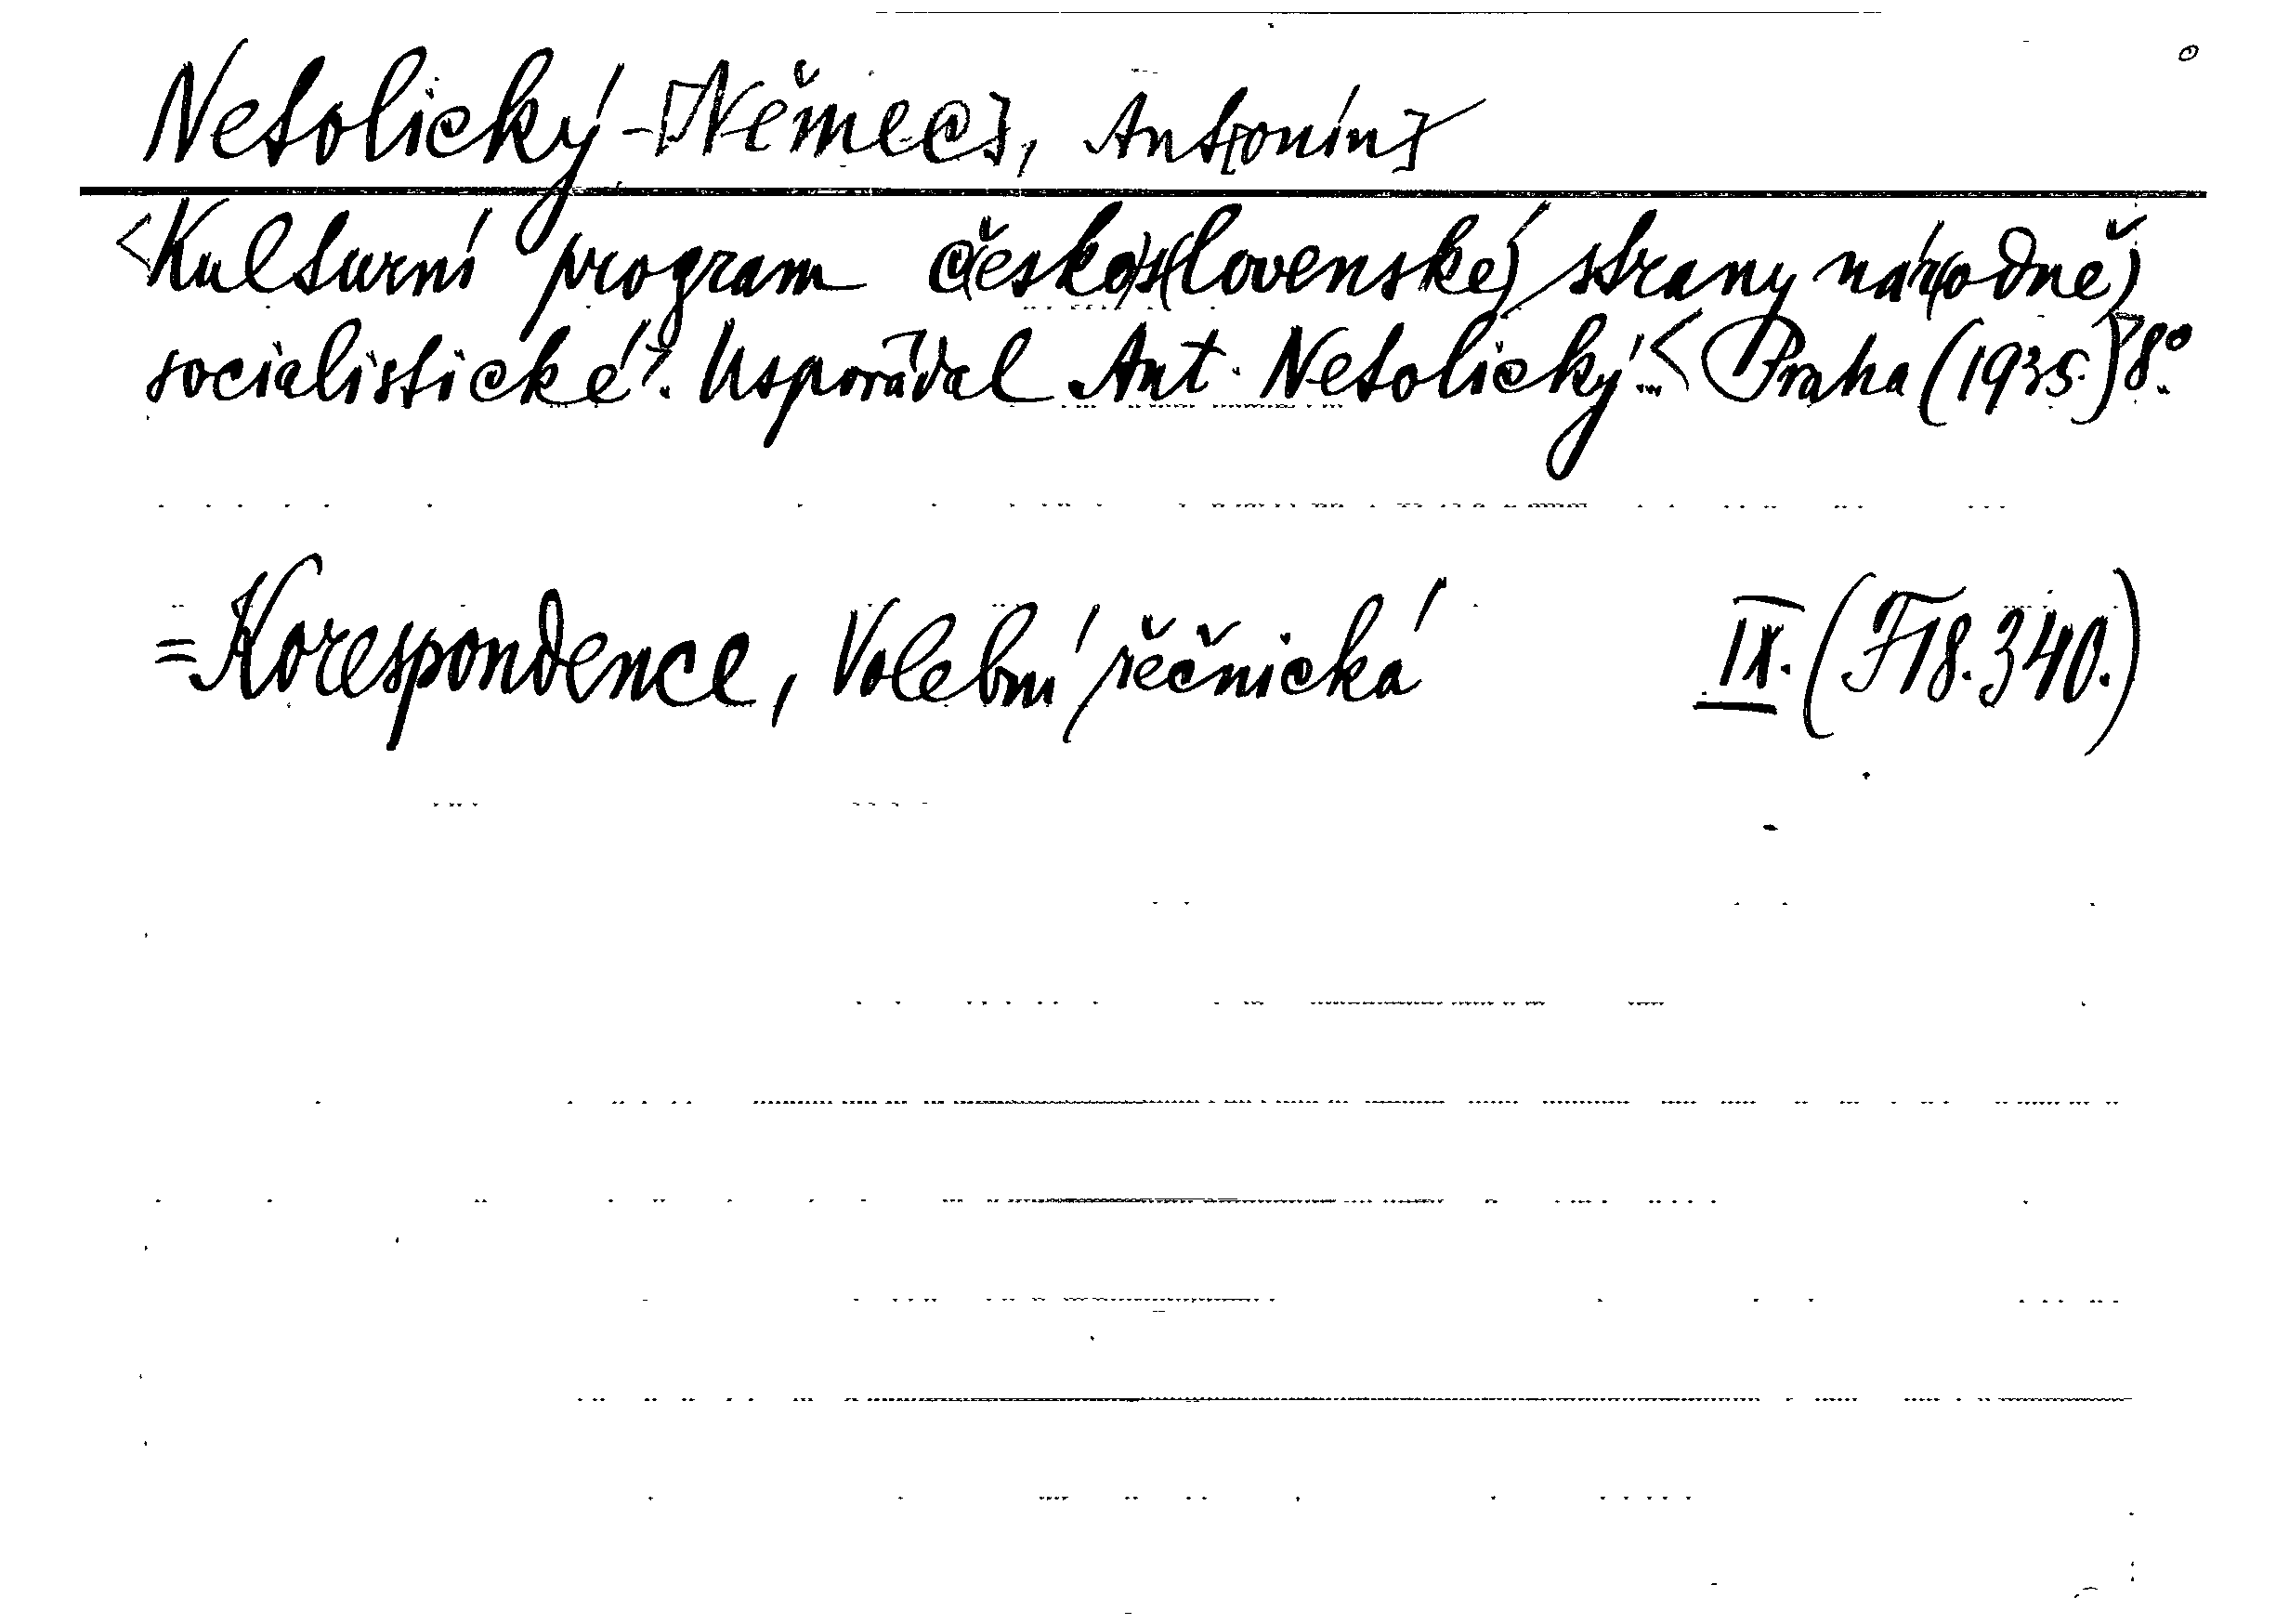 Netolický-[Němec], Ant[onín]
<Kulturní program č(esko)s(lovenské) strany nár(odně)
socialistické?. Uspořádal Ant. Netolický.< Praha (1935.) 8º.
=Korespondence, Volební řečnická IX. (F18.340.)